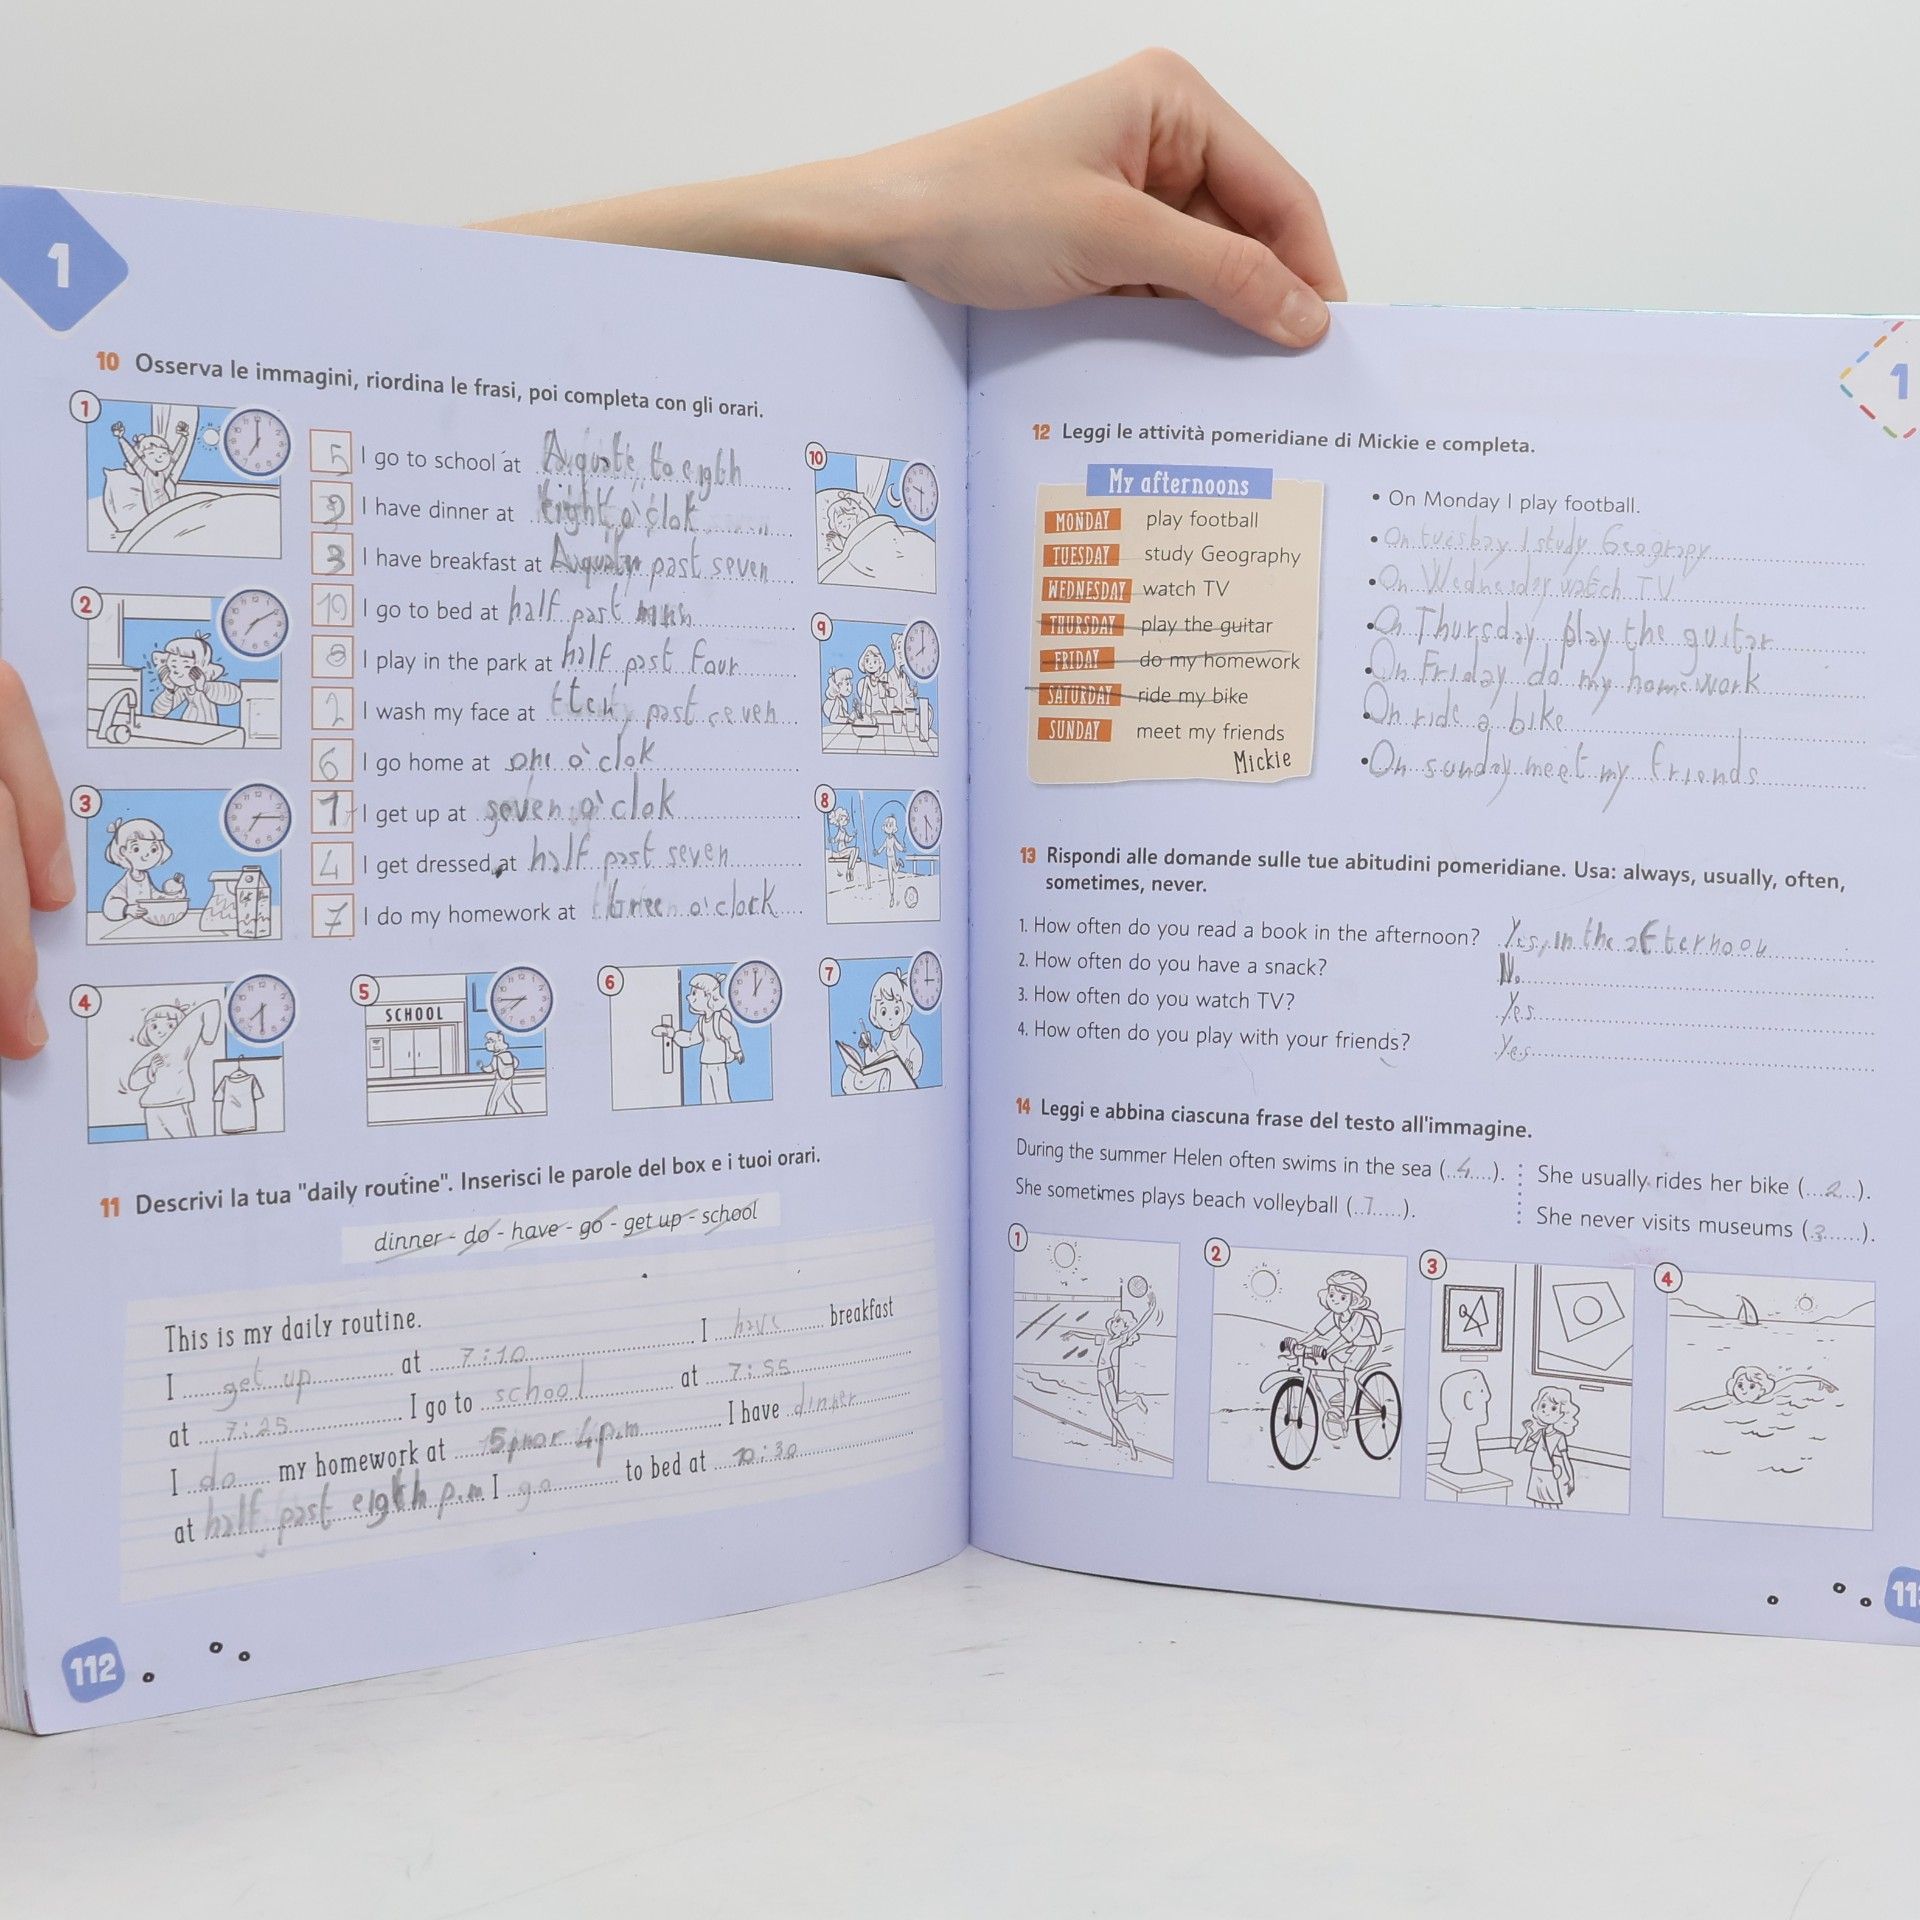 1
10 Osserva le immagini, riordina le frasi, poi completa con gli orari.
1
5 I go to school at A quate to eigth
9 I have dinner at eight o'clok
3 I have breakfast at past seven
10 I go to bed at half past
8 I play in the park at half past four
2 I wash my face at past seven
6 I go home at one o'clok
1 I get up at seven o'clok
4 I get dressed at half past seven
7 I do my homework at o'clock
10
2
9
3
8
4
5
SCHOOL
6
7
11 Descrivi la tua "daily routine". Inserisci le parole del box e i tuoi orari.
dinner - do - have - go - get up - school
This is my daily routine.
I get up at 7:10 I have breakfast
at 7:25 I go to school at 7:55
I do my homework at 4 p.m I have dinner
at half past eigth p.m I go to bed at 10:30
112
1
12 Leggi le attività pomeridiane di Mickie e completa.
My afternoons
MONDAY play football
TUESDAY study Geography
WEDNESDAY watch TV
THURSDAY play the guitar
FRIDAY do my homework
SATURDAY ride my bike
SUNDAY meet my friends
Mickie
• On Monday I play football.
• On tuesbay I study Geograpy
• On Wednesday watch TV
• On Thursday play the guitar
• On Friday do my homework
• On ride a bike
• On sunday meet my friends
13 Rispondi alle domande sulle tue abitudini pomeridiane. Usa: always, usually, often,
sometimes, never.
1. How often do you read a book in the afternoon? Yes, in the afternoon
2. How often do you have a snack? No
3. How often do you watch TV? Yes
4. How often do you play with your friends? Yes
14 Leggi e abbina ciascuna frase del testo all'immagine.
During the summer Helen often swims in the sea (..4....).
She sometimes plays beach volleyball (..1.....).
She usually rides her bike (...2...).
She never visits museums (.3......).
1
2
3
4